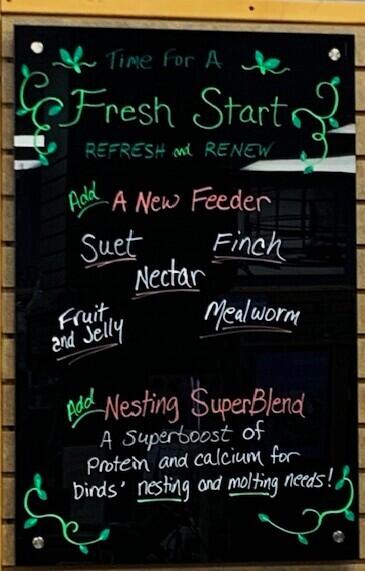 Time For A
Fresh Start
REFRESH and RENEW
Add A New Feeder
Suet Finch
Nectar
Fruit and Jelly Mealworm
Add Nesting SuperBlend
A Superboost of
Protein and calcium for
birds' nesting and molting needs!